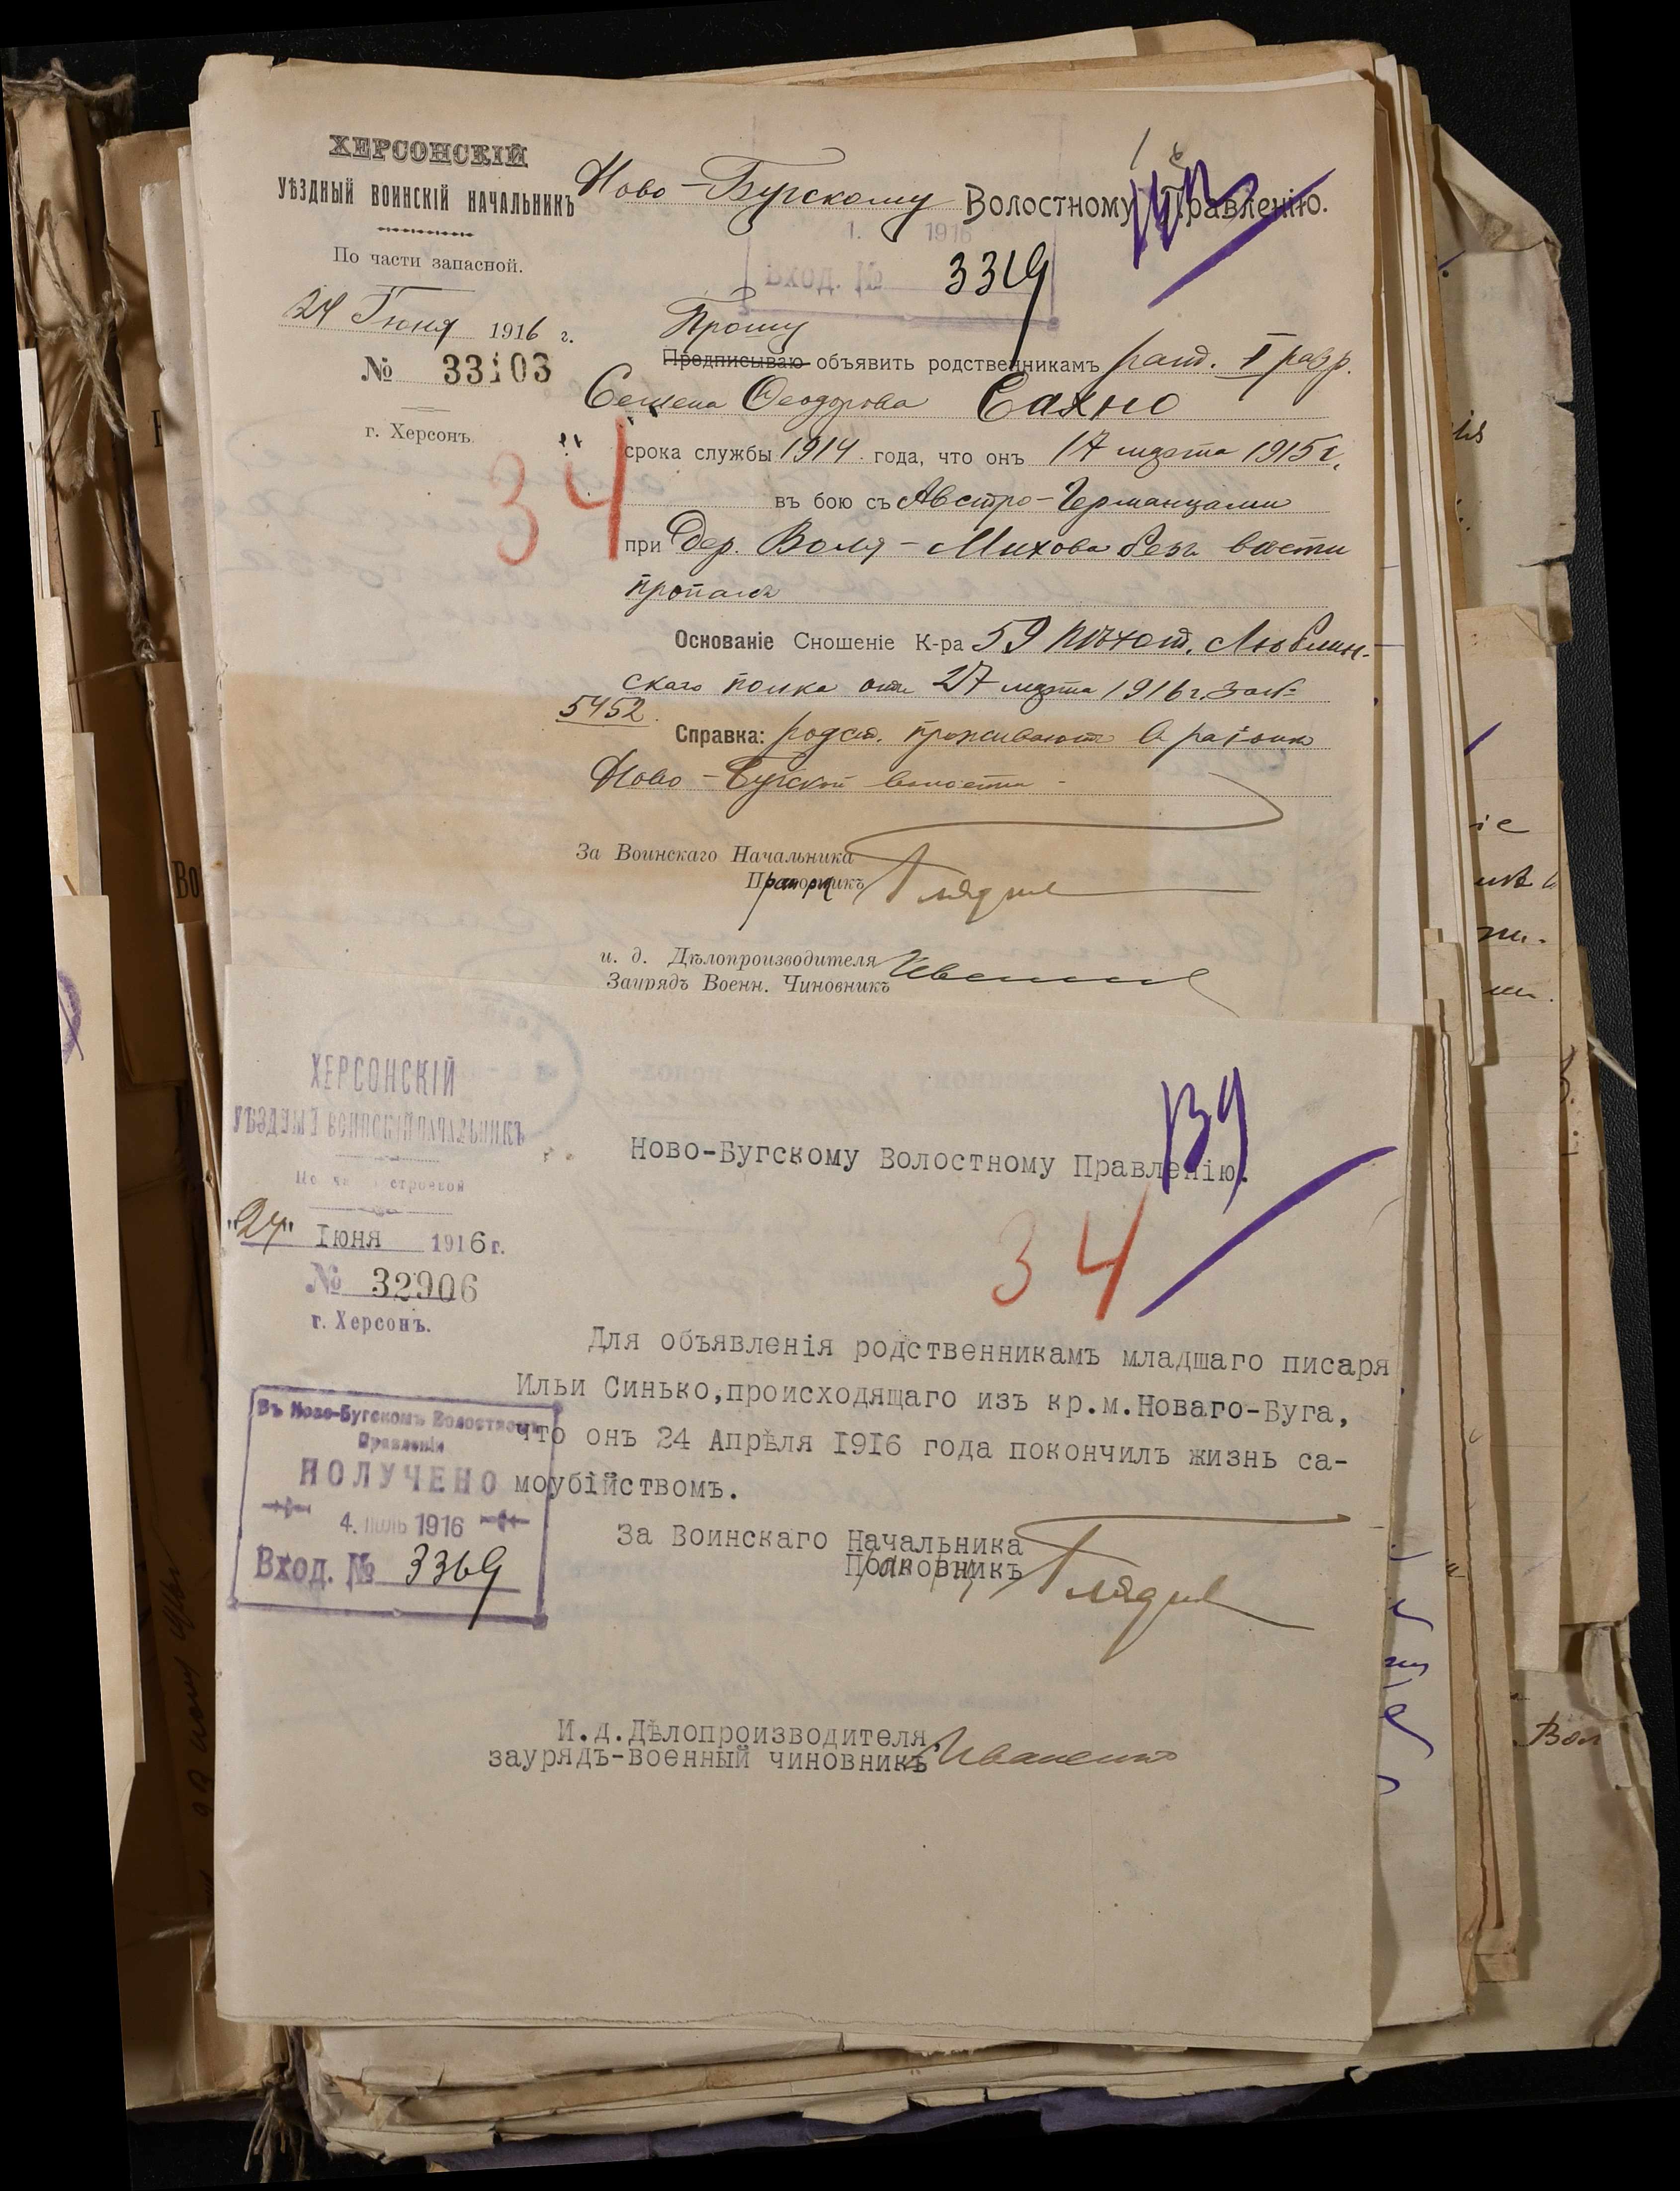 ХЕРСОНСКІЙ
УѢЗДНЫЙ ВОИНСКІЙ НАЧАЛЬНИКЪ
По части запасной.
24 Іюня 1916 г.
№ 33103
г. Херсонъ.
Ново-Бугскому Волостному Правленію.
1916
Вход. № 3319
Прошу
Предписываю объявить родственникамъ рат. I разр.
Семена Ѳеодорова Сахно
34
срока службы 1914 года, что онъ 17 марта 1915 г.
въ бою съ Австро-Германцами
при дер. Воля-Михова безъ вести
пропалъ
Основаніе Сношеніе К-ра 59 пѣхот. Люблин-
скаго полка отъ 27 марта 1916 г. за №
5452
Справка: родст. проживаютъ в раіонѣ
Ново-Бугской волости
За Воинскаго Начальника
и. д. Дѣлопроизводителя
Заурядъ Военн. Чиновникъ
ХЕРСОНСКІЙ
УѢЗДНЫЙ ВОИНСКІЙ НАЧАЛЬНИКЪ
По части строевой
"24" Іюня 1916 г.
№ 32906
г. Херсонъ.
139
Ново-Бугскому Волостному Правленію.
34
Для объявленія родственникамъ младшаго писаря
Ильи Синько,происходящаго изъ кр.м.Новаго-Буга,
что онъ 24 Апрѣля 1916 года покончилъ жизнь са-
моубійствомъ.
Въ Ново-Бугскомъ Волостномъ
Правленіи
ПОЛУЧЕНО
4. июль 1916
Вход. № 3369
За Воинскаго Начальника
Полковникъ
И.д.Дѣлопроизводителя
заурядъ-военный чиновникъ Иваненко